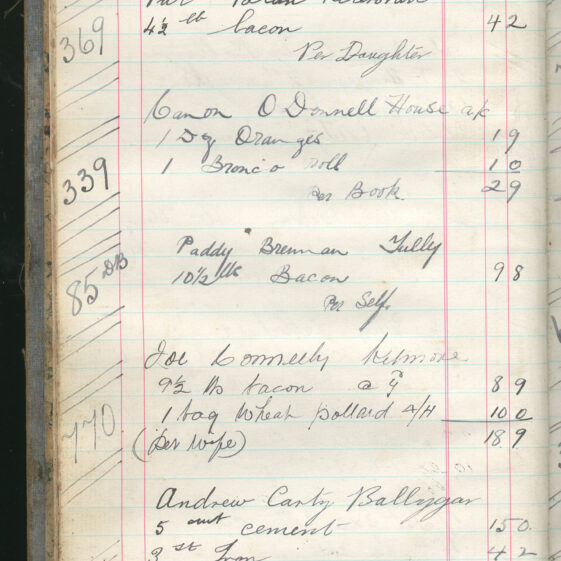 369
4½ lb bacon 4 2
Per Daughter
Canon O Donnell House a/c
1 Doz Oranges 1 9
339
1 Bronco roll 1 0
2 9
Per Book.
Paddy Brennan Tully
85 DB
10½ lbs Bacon 9 8
Per Self
Joe Connelly Kilmore
9½ lbs bacon @ 8 9
1 bag Wheat pollard 10 0
770
(per wife) 18.9
Andrew Carty Ballygar
5 cwt cement 15 0
3 st Iron 4 2